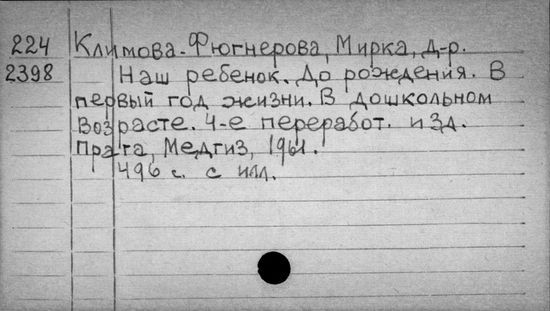 224 Климова-Фюгнерова, Мирка, д-р.
2398 Наш ребенок. До рождения. В
первый год жизни. В дошкольном
возрасте. 4-е переработ. изд.
Прага, Медгиз, 1961.
496 с. с илл.